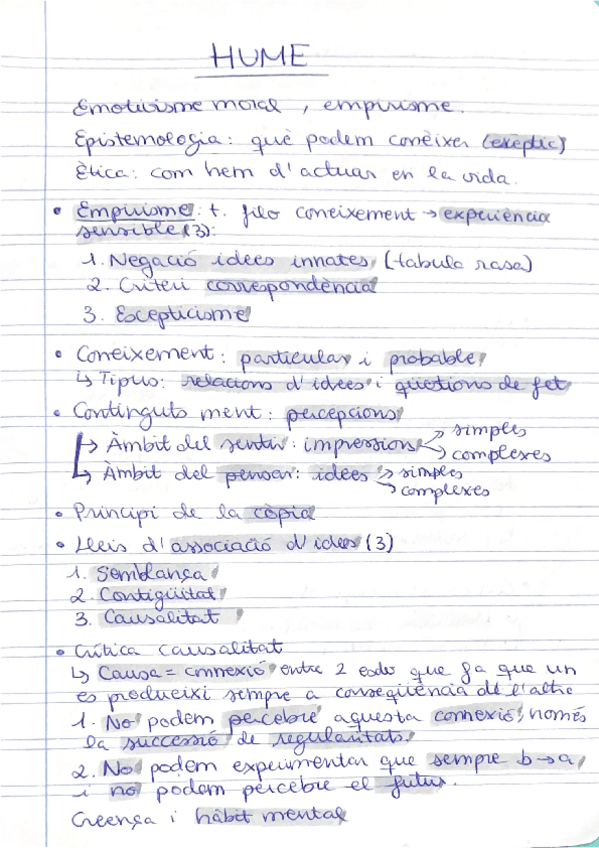 HUME
Emotivisme moral, empirisme.
Epistemologia: què podem conèixer (escèptic)
Ètica: com hem d'actuar en la vida.
• Empirisme: t. filo coneixement → experiència
sensible (3):
1. Negació idees innates (tabula rasa)
2. Criteri correspondència
3. Escepticisme
• Coneixement: particular i probable
↳ Tipus: relacions d'idees i qüestions de fet
• Continguts ment: percepcions
↳ Àmbit del sentir: impressions → simples
→ complexes
↳ Àmbit del pensar: idees → simples
→ complexes
• Principi de la còpia
• Lleis d'associació d'idees (3)
1. Semblança
2. Contigüitat
3. Causalitat
• Crítica causalitat
↳ Causa = connexió entre 2 que fa que un
es produeixi sempre a conseqüència de l'altre
1. No podem percebre aquesta connexió, només
la successió de regularitats.
2. No podem experimentar que sempre b→a,
i no podem percebre el futur.
Creença i hàbit mental